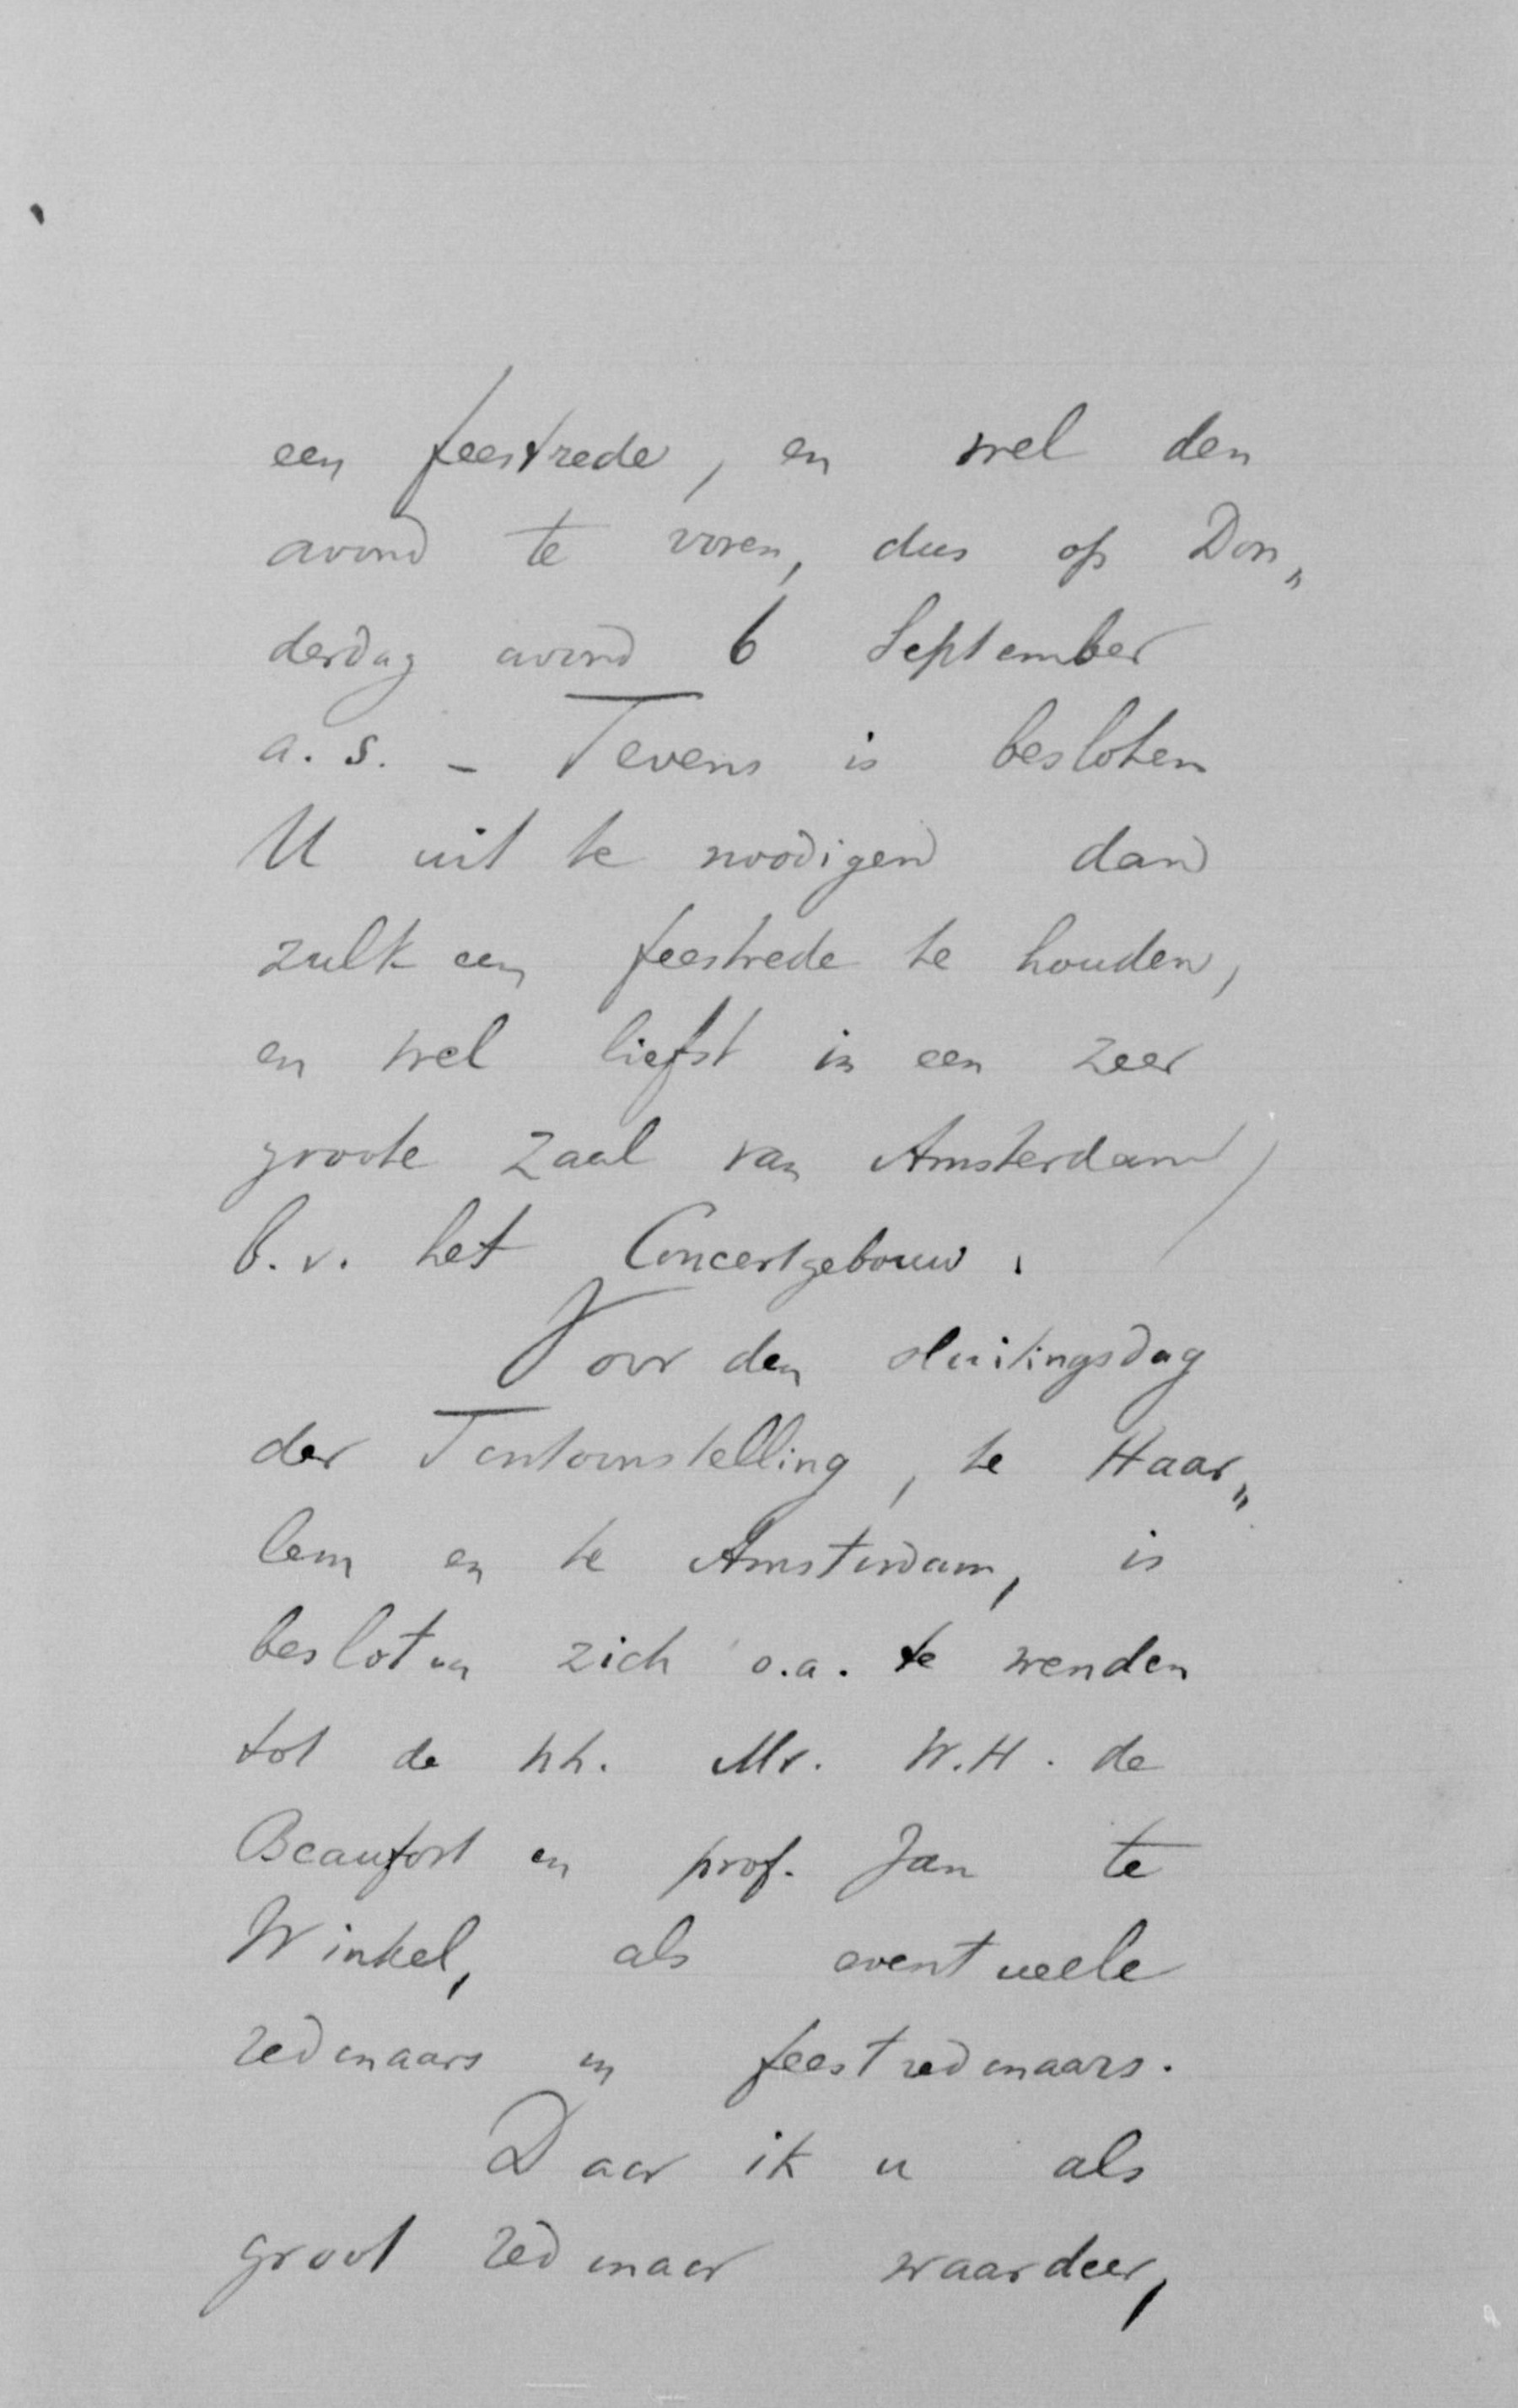 een feestrede, en wel den
avond te voren, dus op Don„
derdag avond 6 September
a.s. - Tevens is besloten
U uit te noodigen dan
zulk een feestrede te houden,
en wel liefst in een zeer
groote zaal van Amsterdam,
b.v. het Concertgebouw.
Voor den sluitingsdag
der Tentoonstelling, te Haar„
lem en te Amsterdam, is
besloten zich o.a. te wenden
tot de hh. Mr. W.H. de
Beaufort en prof. Jan te
Winkel, als eventueele
redenaars en feestredenaars.
Daar ik u als
groot redenaar waardeer,